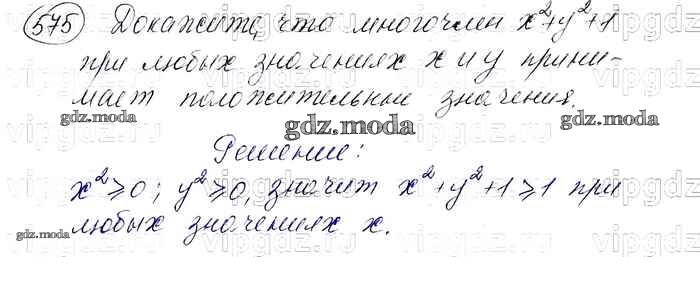 575 Докажите, что многочлен x²+y²+1
при любых значениях x и y прини-
мает положительные значения.
gdz.moda
gdz.moda
gdz.moda
Решение:
x²⩾0; y²⩾0, значит x²+y²+1⩾1 при
любых значениях x.
gdz.moda